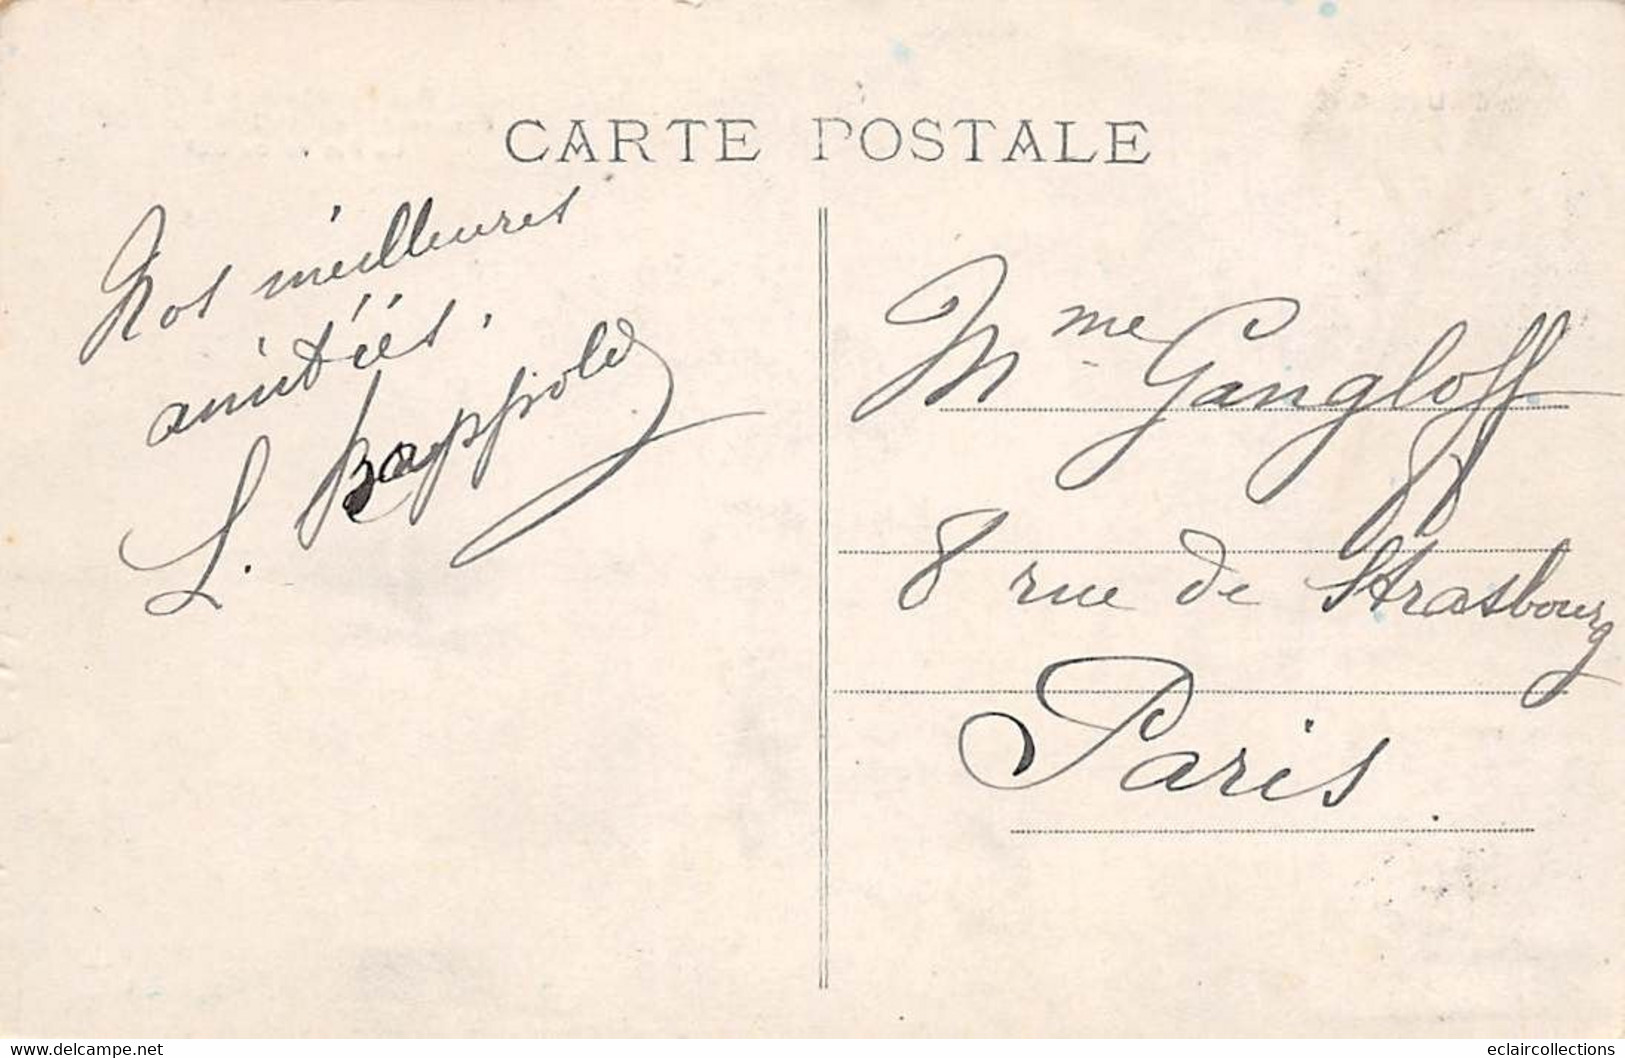 CARTE POSTALE
Nos meilleures
amitiés.
L. Rappold
Mme Gangloff
8 rue de Strasbourg
Paris.
www.delcampe.net
eclaircollections